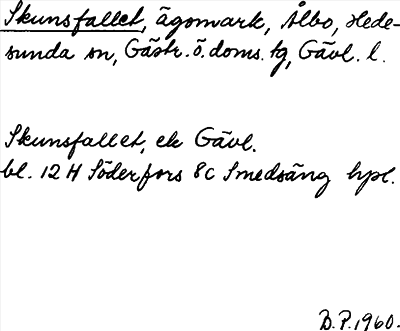 Skunsfallet, ägomark, Ålbo, Hede-
sunda sn, Gästr. ö. doms. tg, Gävl. l.
Skunsfallet, ek Gävl.
bl. 12 H Söderfors 8c Smedsäng hpl.
B.P. 1960.